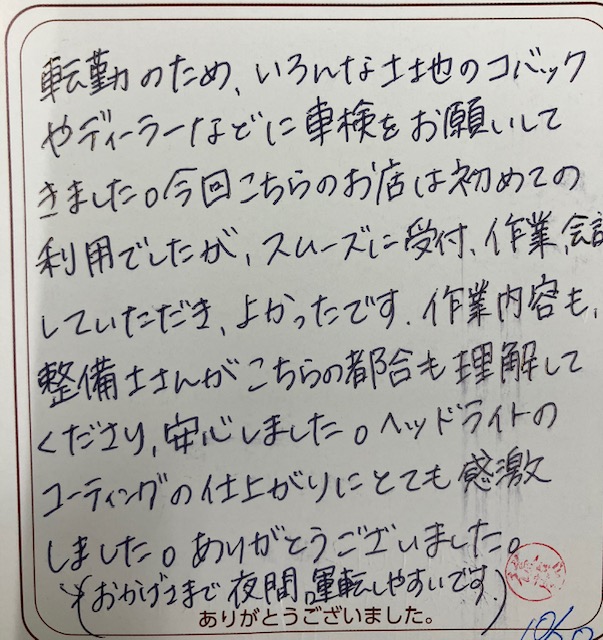 転勤のため、いろんな土地のコバック
やディーラーなどに車検をお願いして
きました。今回こちらのお店は初めての
利用でしたが、スムーズに受付、作業、会計
していただき、よかったです。作業内容も、
整備士さんがこちらの都合も理解して
くださり、安心しました。ヘッドライトの
コーティングの仕上がりにとても感激
しました。ありがとうございました。
(おかげさまで夜間運転しやすいです。)
ありがとうございました。